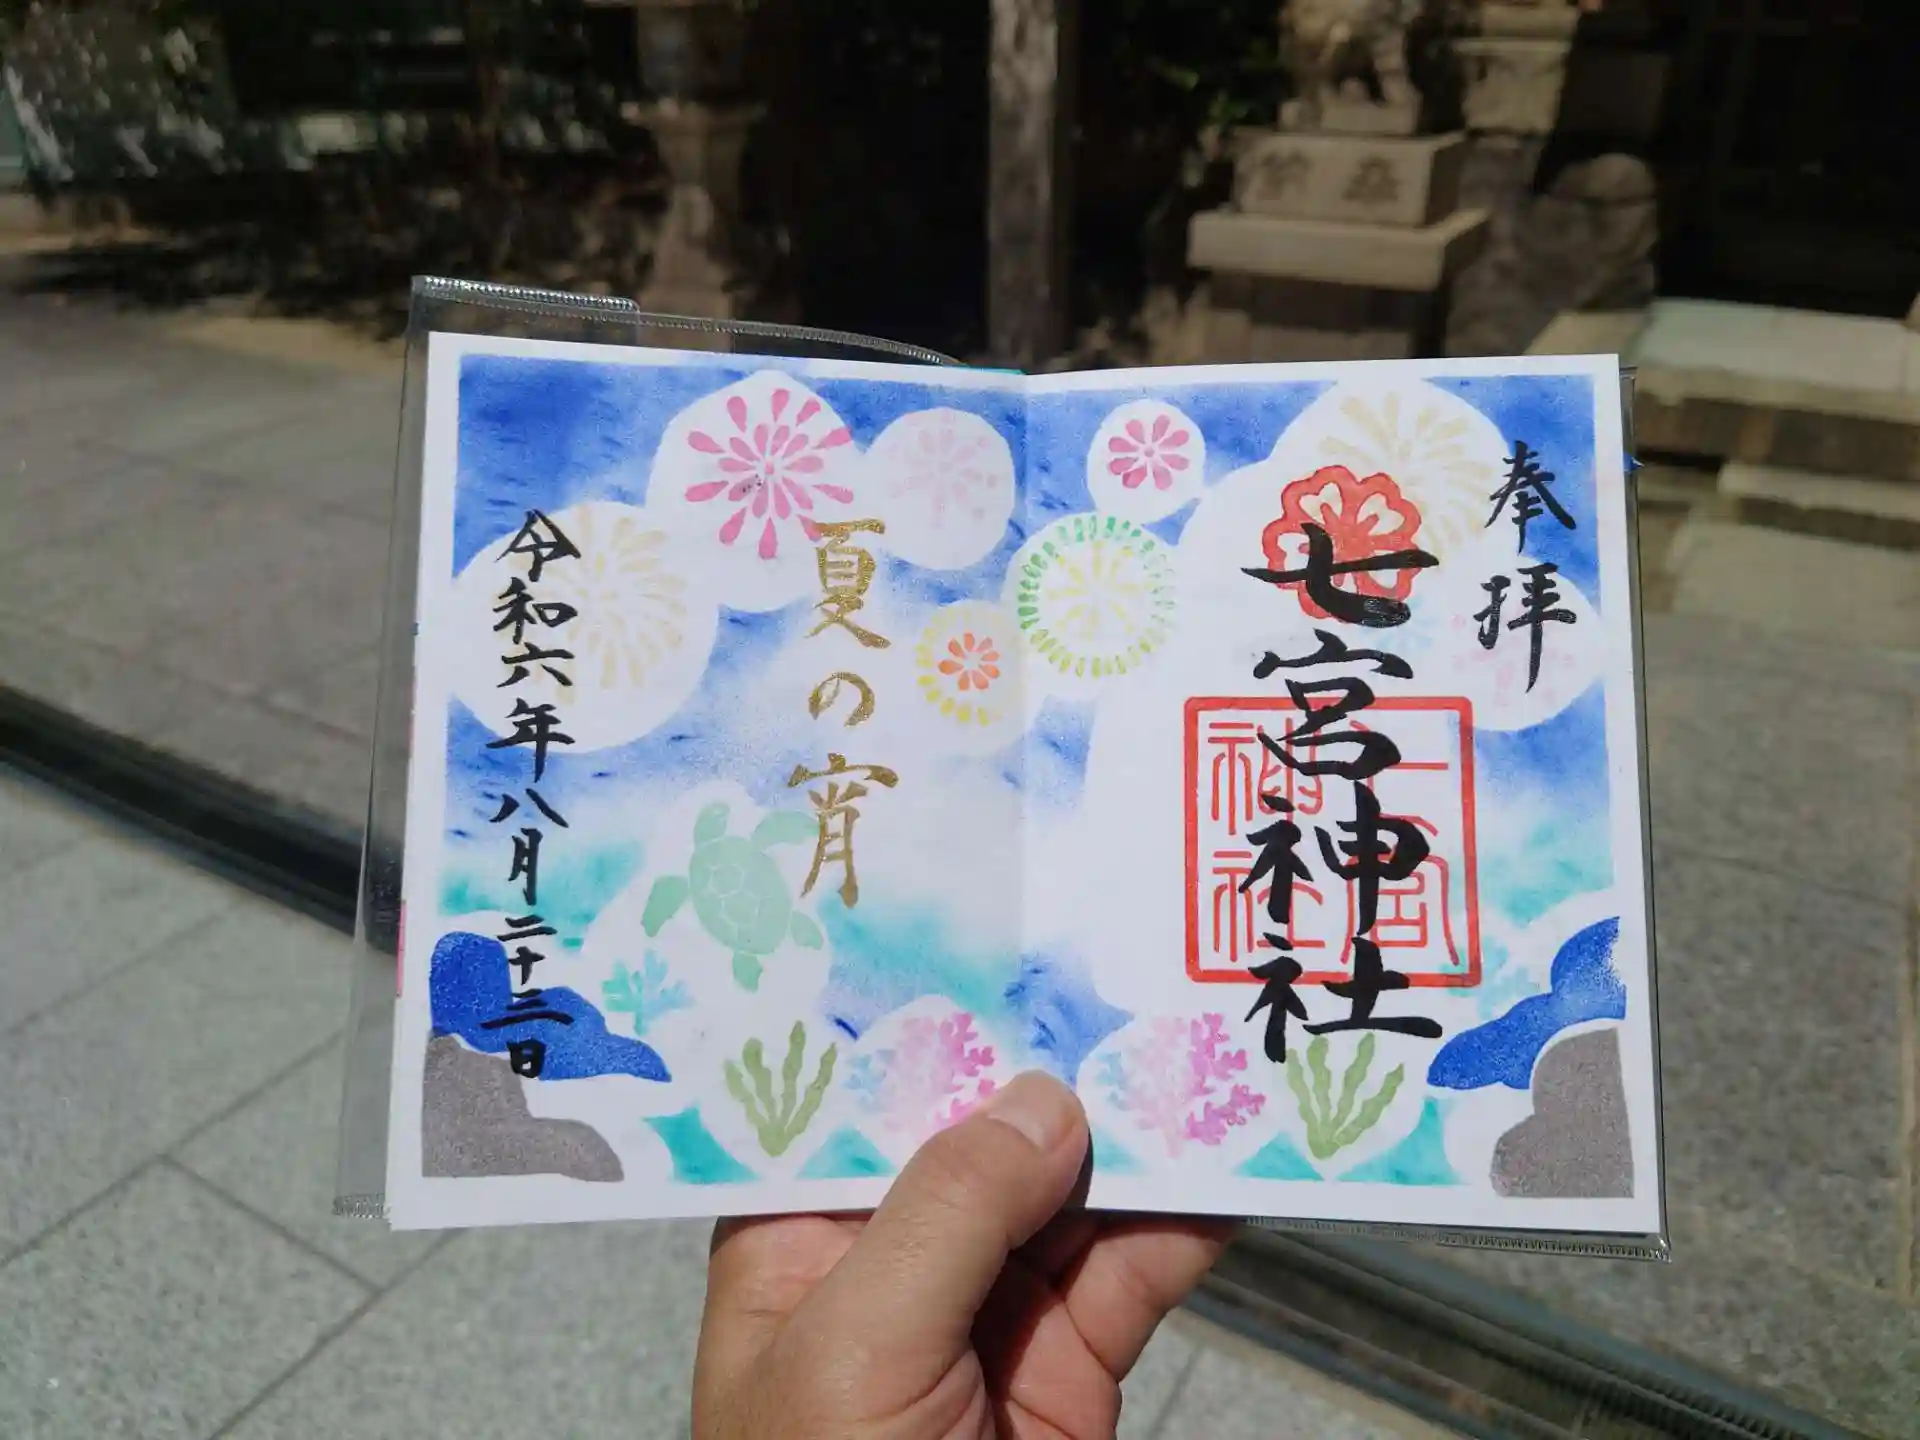 奉拝
七宮神社
七宮
神社
夏の宵
令和六年八月二十三日